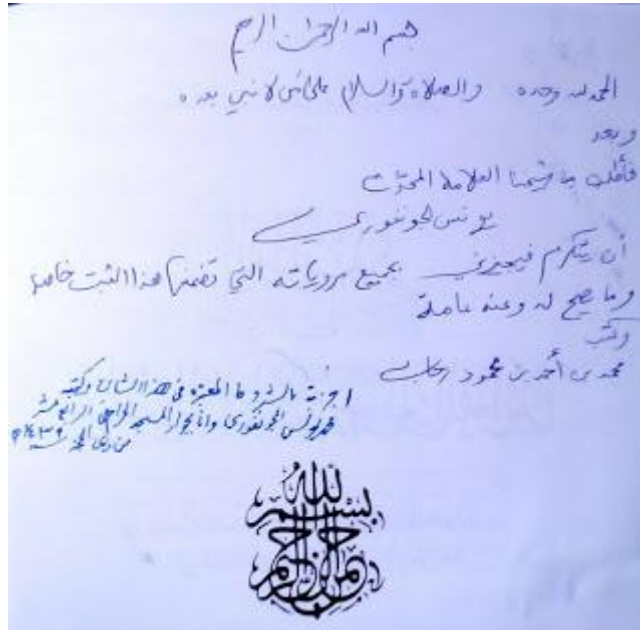 بسم الله الرحمن الرحيم
الحمد لله وحده والصلاة والسلام على من لا نبي بعده
وبعد
فأطلب من شيخنا العلامة المحدّث
يونس الجونفوري
أن يتكرم فيجيزني بجميع مروياته التي تضمنها هذا الثبت خاصة
وما يصح له وعنه عامة
وكتب
محمد بن أحمد بن محمود
اجزته بالشروط المعتبرة في هذا الشان وكتبه
محمد يونس الجونفوري وانا بجوار المسجد الحرام
من ذي الحجة
بسم الله الرحمن الرحيم